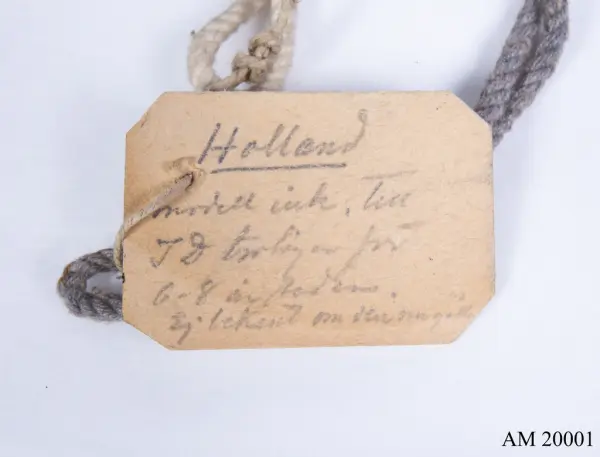 Holland
modell ink. till
J D tröjor för
6-8 år sedan.
Ej bekant om den
AM 20001